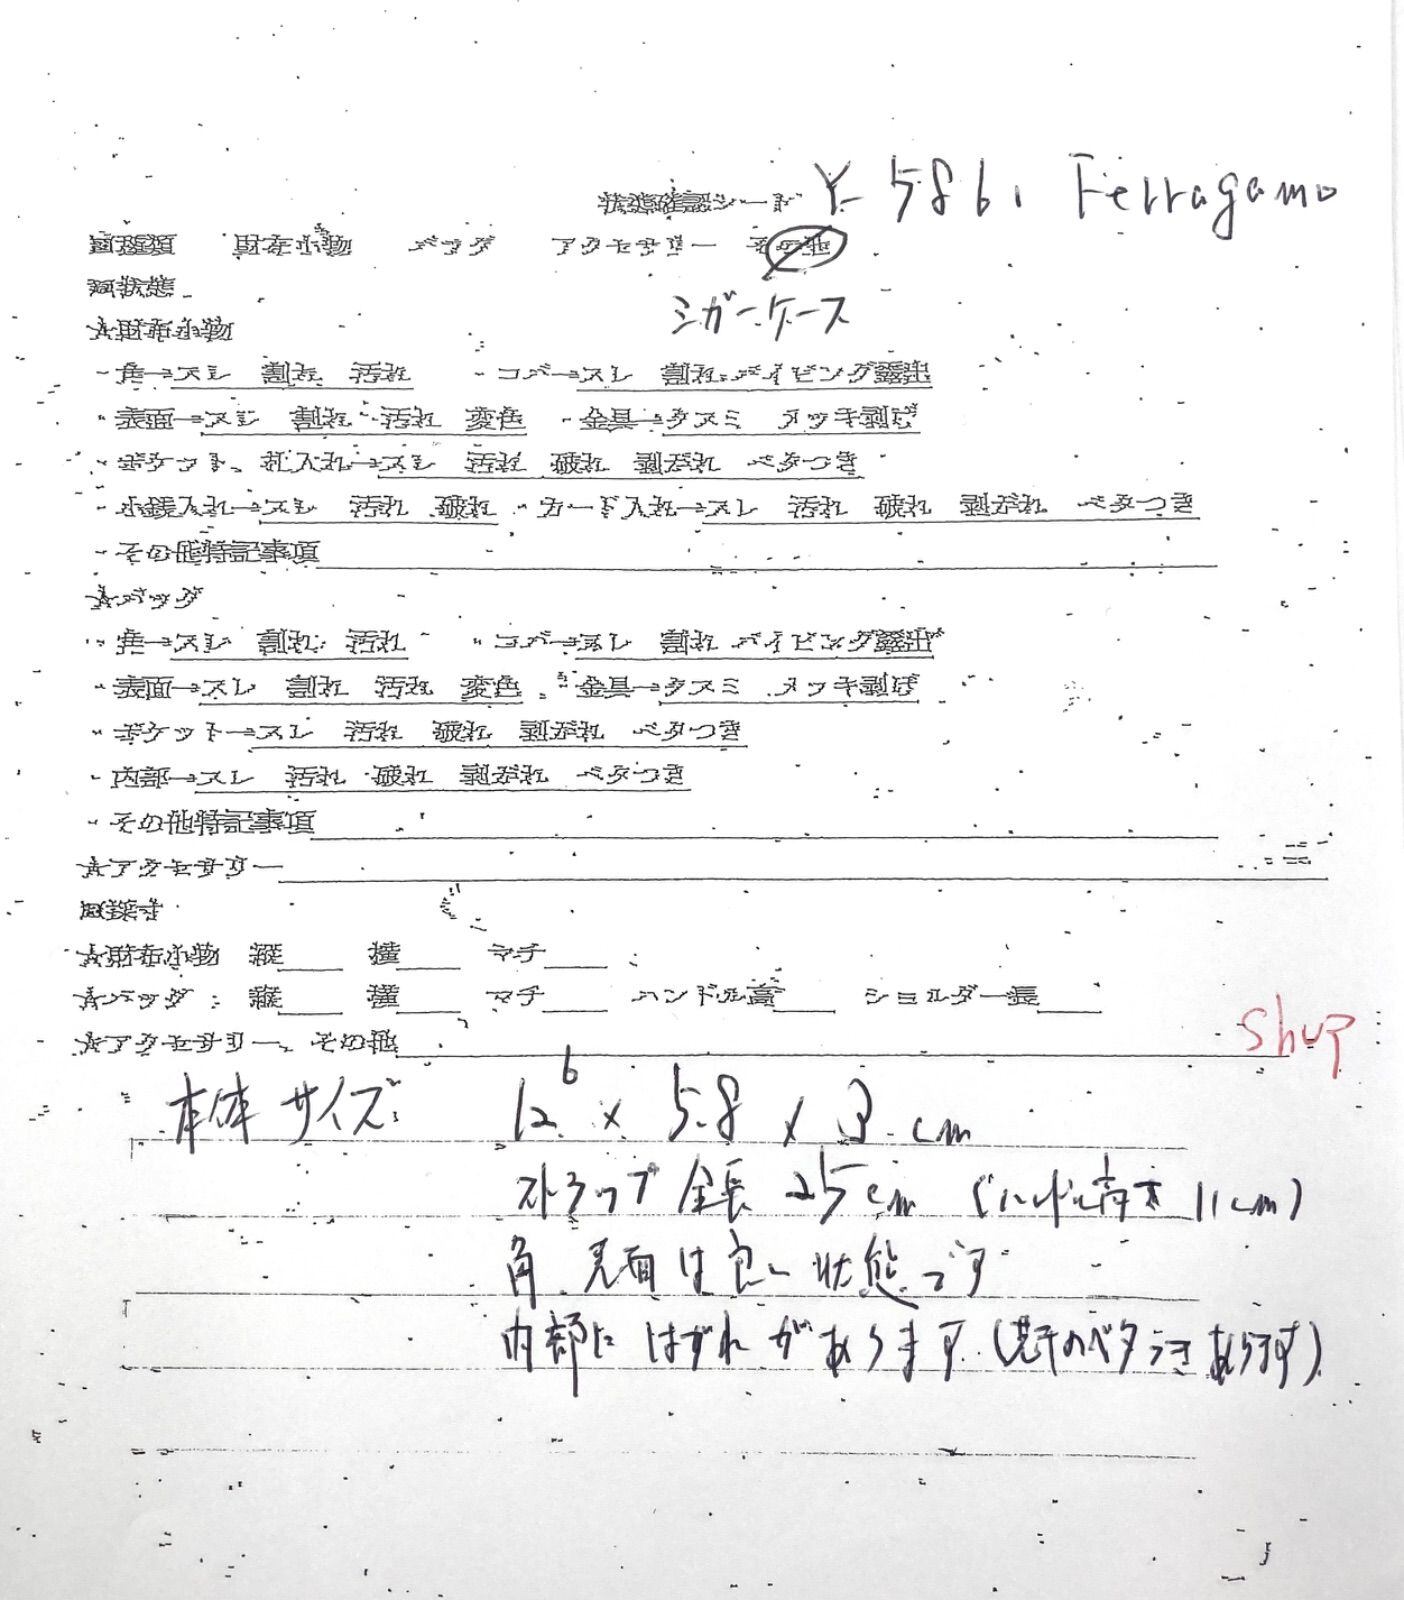 状態確認シート Y-5861 Ferragamo
■種類 財布小物 バッグ アクセサリー その他
■状態
シガーケース
★財布小物
・角→スレ 割れ 汚れ ・コバ→スレ 割れ パイピング露出
・表面→スレ 割れ 汚れ 変色 ・金具→クスミ メッキ剥げ
・ポケット、札入れ→スレ 汚れ 破れ 剥がれ ベタつき
・小銭入れ→スレ 汚れ 破れ ・カード入れ→スレ 汚れ 破れ 剥がれ ベタつき
・その他特記事項
★バッグ
・角→スレ 割れ 汚れ ・コバ→スレ 割れ パイピング露出
・表面→スレ 割れ 汚れ 変色 ・金具→クスミ メッキ剥げ
・ポケット→スレ 汚れ 破れ 剥がれ ベタつき
・内部→スレ 汚れ 破れ 剥がれ ベタつき
・その他特記事項
★アクセサリー
■採寸
★財布小物 縦 横 マチ
★バッグ 縦 横 マチ ハンドル高 ショルダー長
★アクセサリー、その他
shop
本体サイズ 12.6 × 5.8 × 3 cm
ストラップ 全長 25cm (ハンドル高さ 11cm)
角 表面は良い状態です
内部に はずれがあります (若干のベタつきあります)